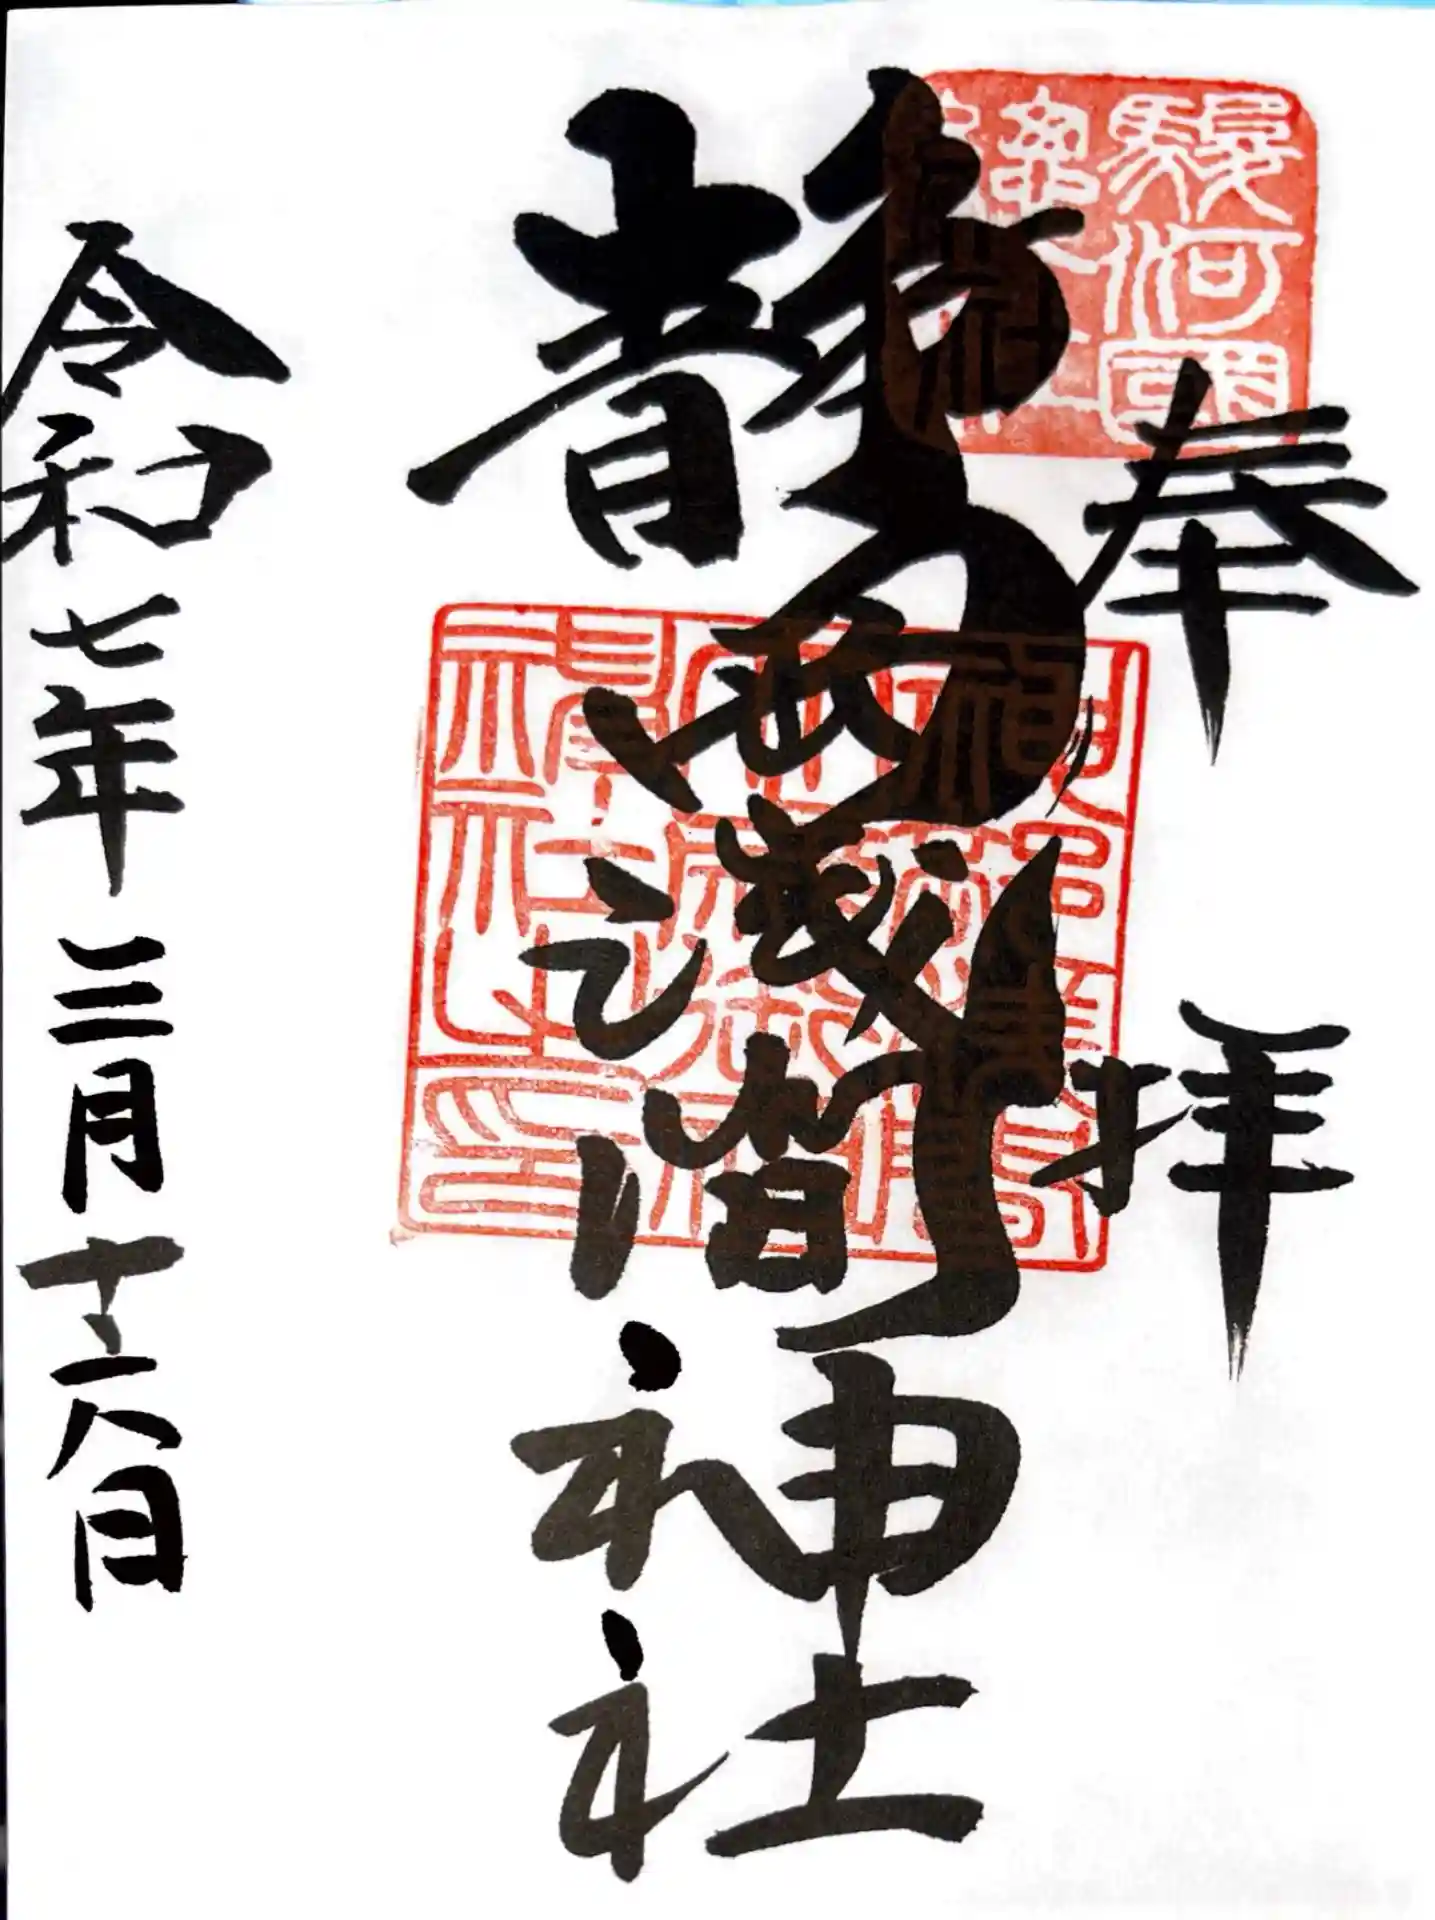 駿河國總社
奉拝
靜岡淺間神社
令和七年三月十六日